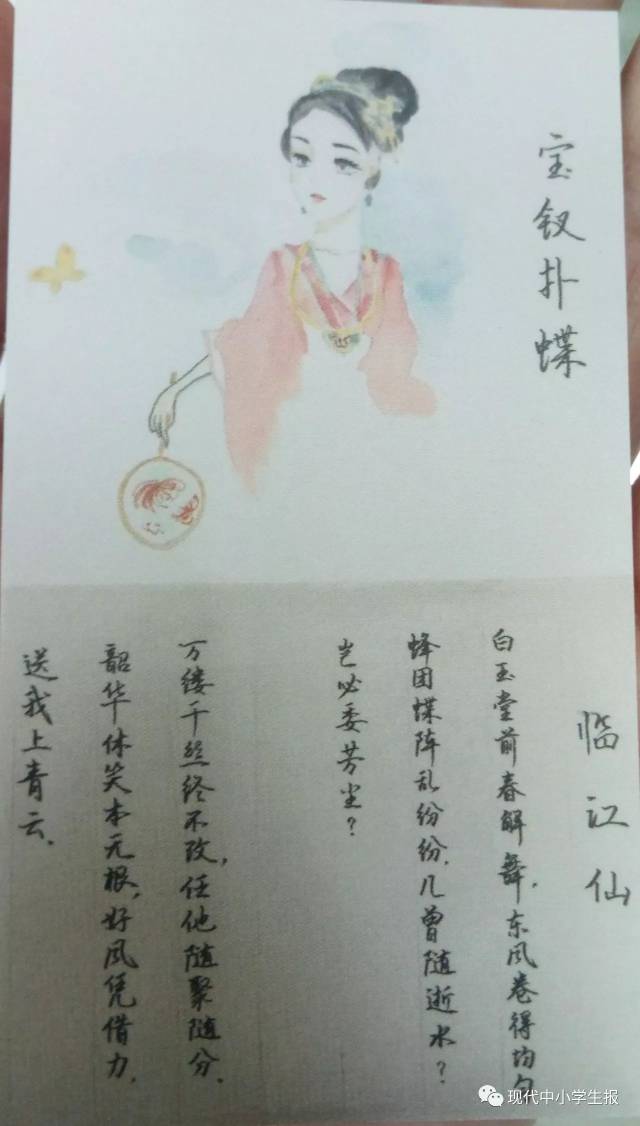 宝钗扑蝶
临江仙
白玉堂前春解舞,东风卷得均匀
蜂团蝶阵乱纷纷.几曾随逝水?
岂必委芳尘?
万缕千丝终不改,任他随聚随分.
韶华休笑本无根,好风凭借力,
送我上青云.
现代中小学生报